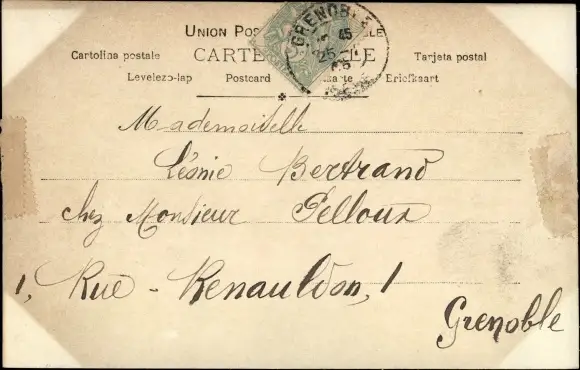 UNION POS LE
CARTE LE
Cartolina postale Tarjeta postal
Levelezo-lap Postcard karte Briefkaart
GRENOBLE
45
25
Mademoiselle
Léonie Bertrand
chez Monsieur Pelloux
1, Rue - Renauldon, 1
Grenoble